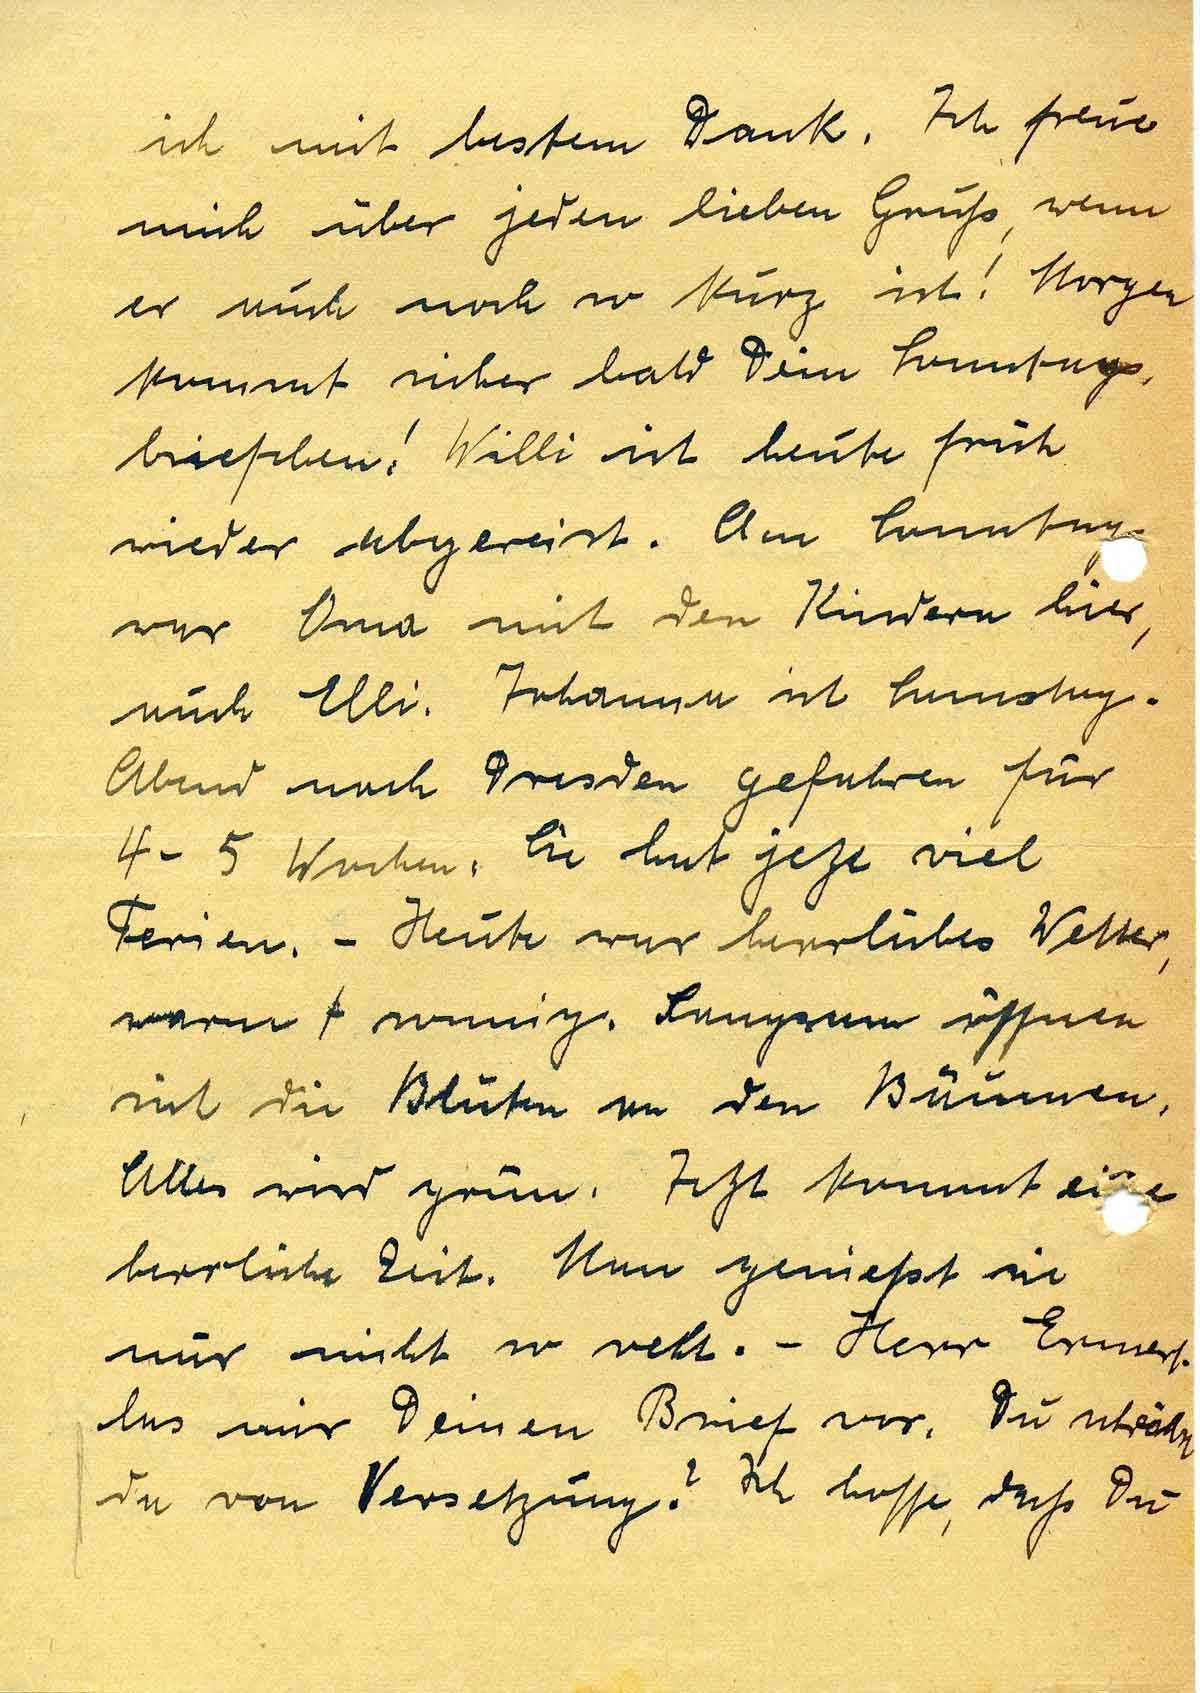 ich mit bestem Dank. Ich freue
mich über jeden lieben Gruß, wenn
er auch noch so kurz ist! Morgen
kommt sicher bald Dein Sonntags-
briefchen! Willi ist heute früh
wieder abgereist. Am Sonntag
war Oma mit den Kindern hier,
auch Elli. Johanna ist Samstag-
Abend nach Dresden gefahren für
4-5 Wochen. Sie hat jetzt viel
Ferien. - Heute war herrliches Wetter,
warm + sonnig. Langsam öffnen
sich die Blüten an den Bäumen.
Alles wird grün. Jetzt kommt eine
herrliche Zeit. Man genießt sie
nur nicht so recht. - Herr
las mir Deinen Brief vor. Du
da von Versetzung? Ich hoffe, daß Du